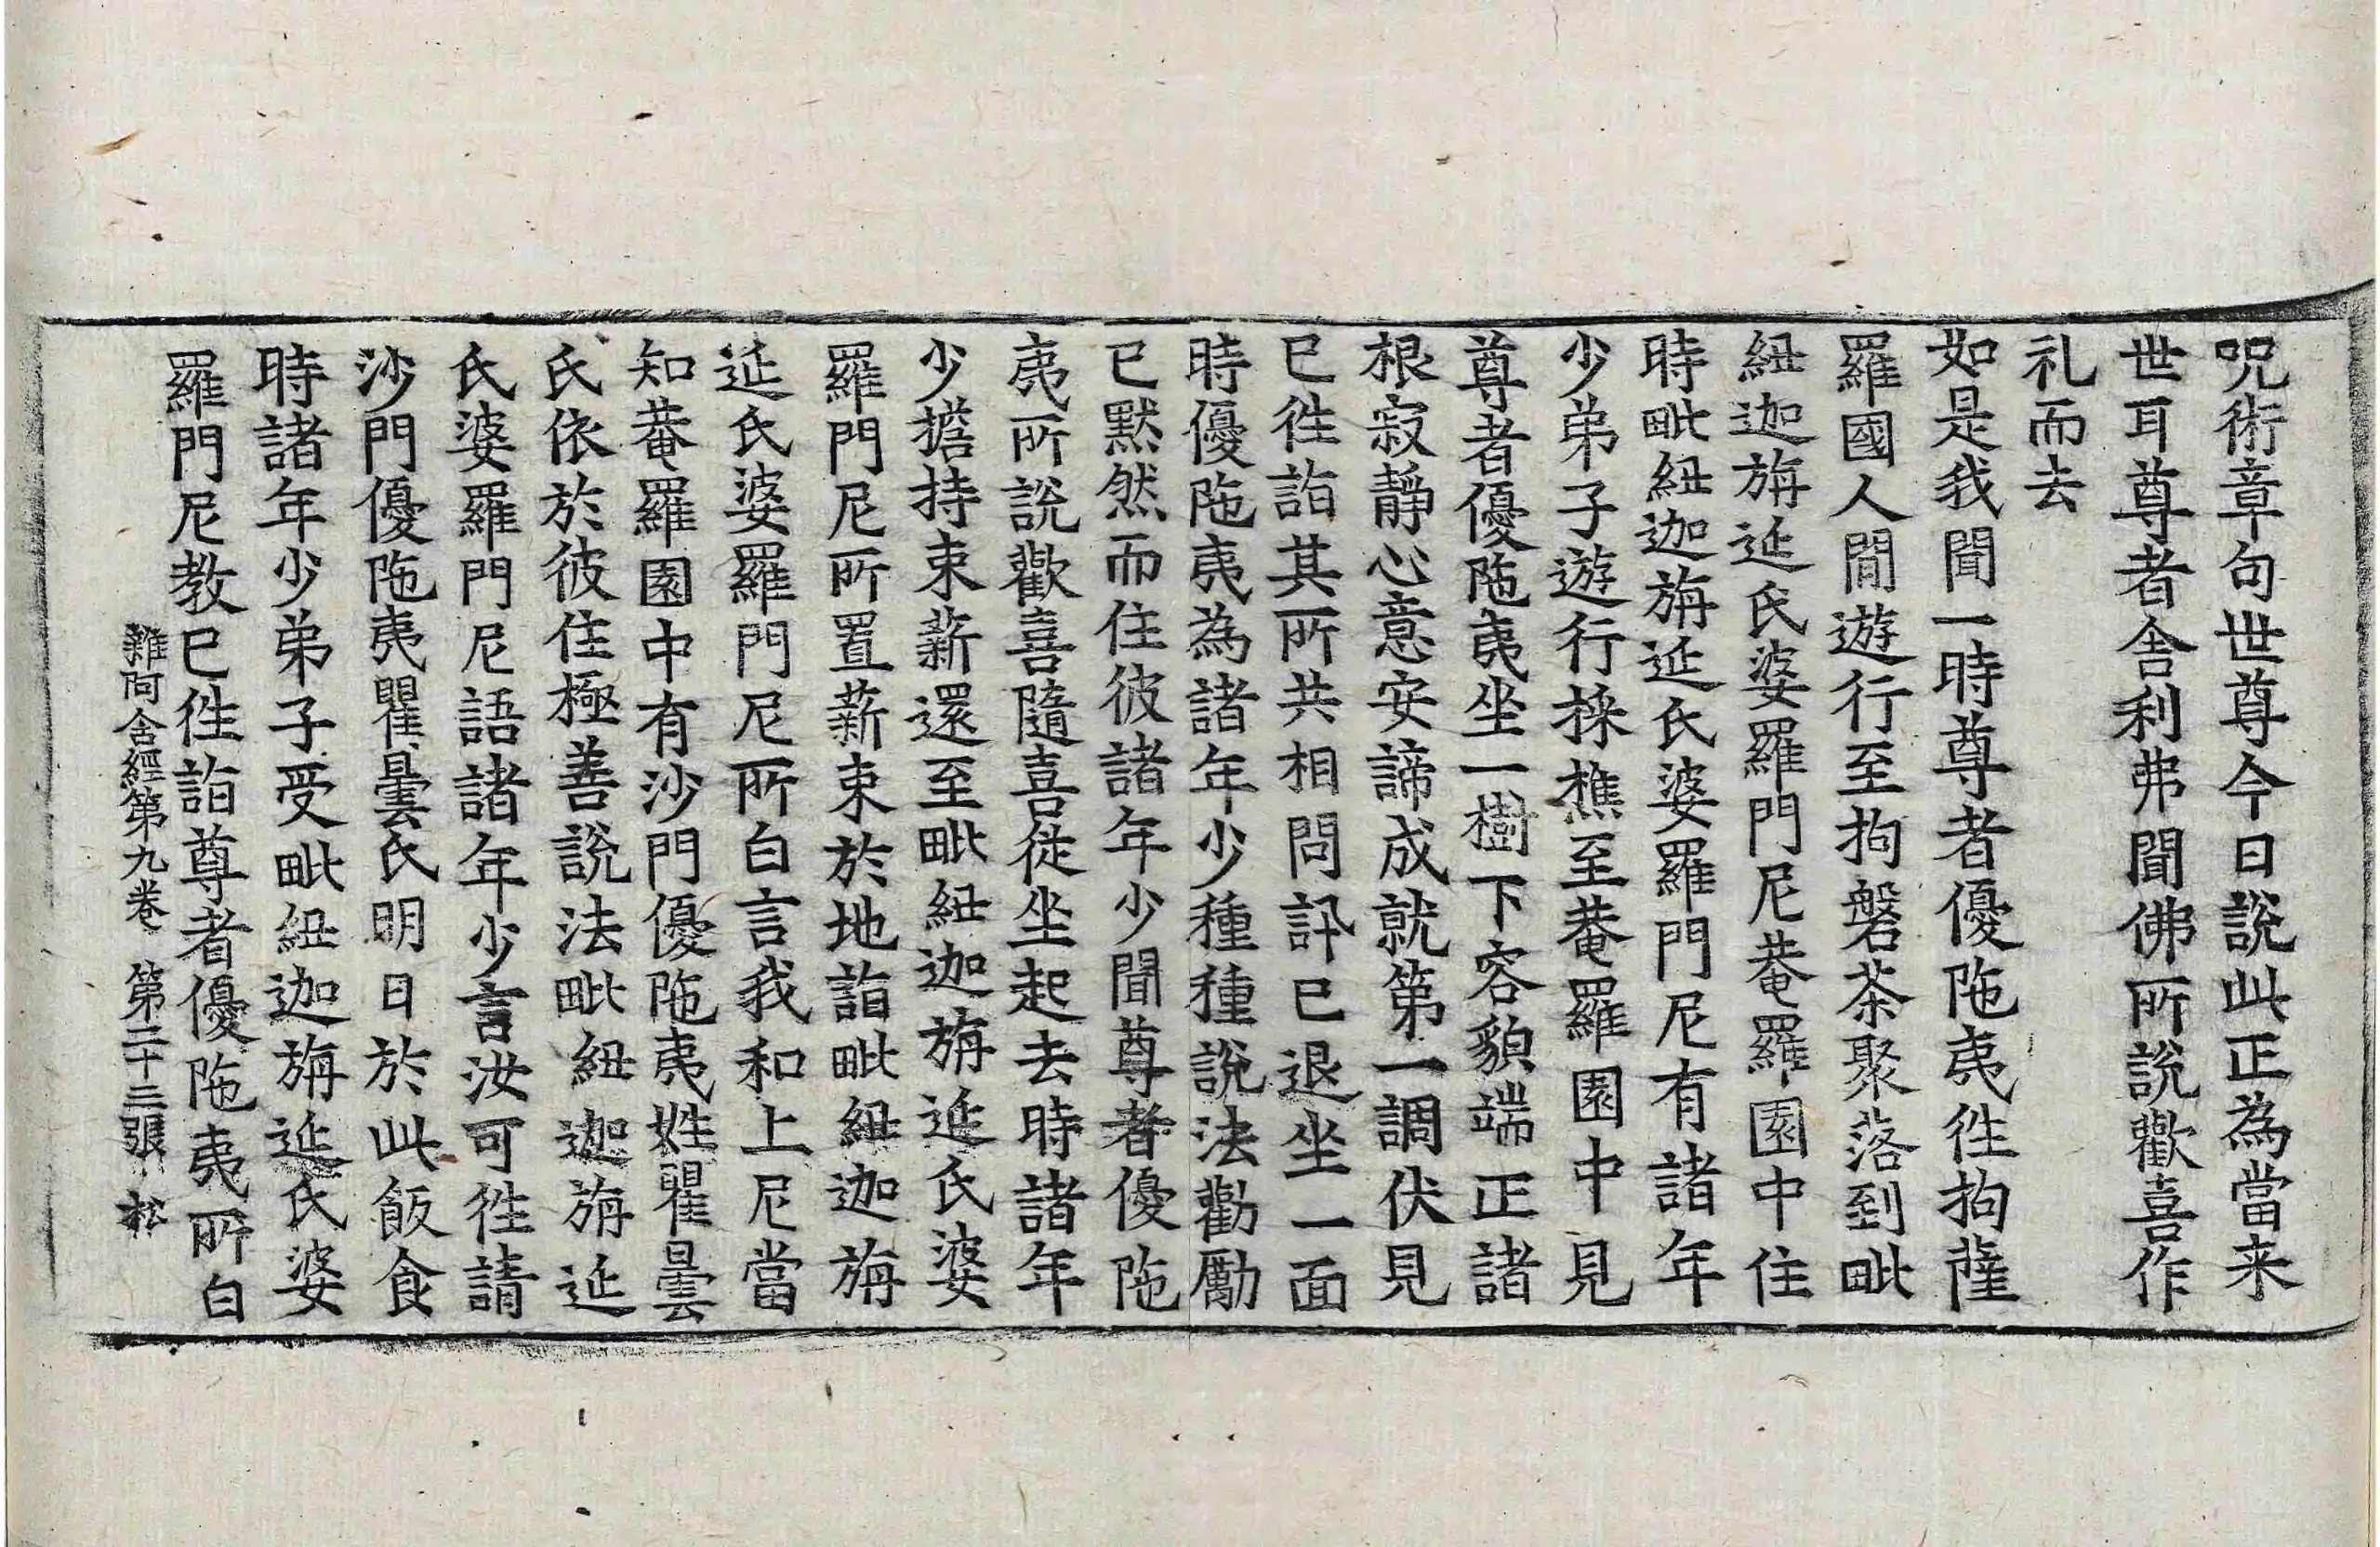 呪術章句世尊今日說此正為當来
世耳尊者舍利弗聞佛所說歡喜作
礼而去
如是我聞一時尊者優陁夷徃拘薩
羅國人閒遊行至拘磐茶聚落到毗
紐迦旃延氏婆羅門尼菴羅園中住
時毗紐迦旃延氏婆羅門尼有諸年
少弟子遊行採樵至菴羅園中見
尊者優陁夷坐一樹下容貌端正諸
根寂靜心意安諦成就第一調伏見
已徃詣其所共相問訊已退坐一面
時優陁夷為諸年少種種說法勸勵
已默然而住彼諸年少聞尊者優陁
夷所說歡喜隨喜從坐起去時諸年
少擔持束薪還至毗紐迦旃延氏婆
羅門尼所置薪束於地詣毗紐迦旃
延氏婆羅門尼所白言我和上尼當
知菴羅園中有沙門優陁夷姓瞿曇
氏依於彼住極善說法毗紐迦旃延
氏婆羅門尼語諸年少言汝可徃請
沙門優陁夷瞿曇氏明日於此飯食
時諸年少弟子受毗紐迦旃延氏婆
羅門尼教已徃詣尊者優陁夷所白
雜阿含經第九卷 第二十三張 松